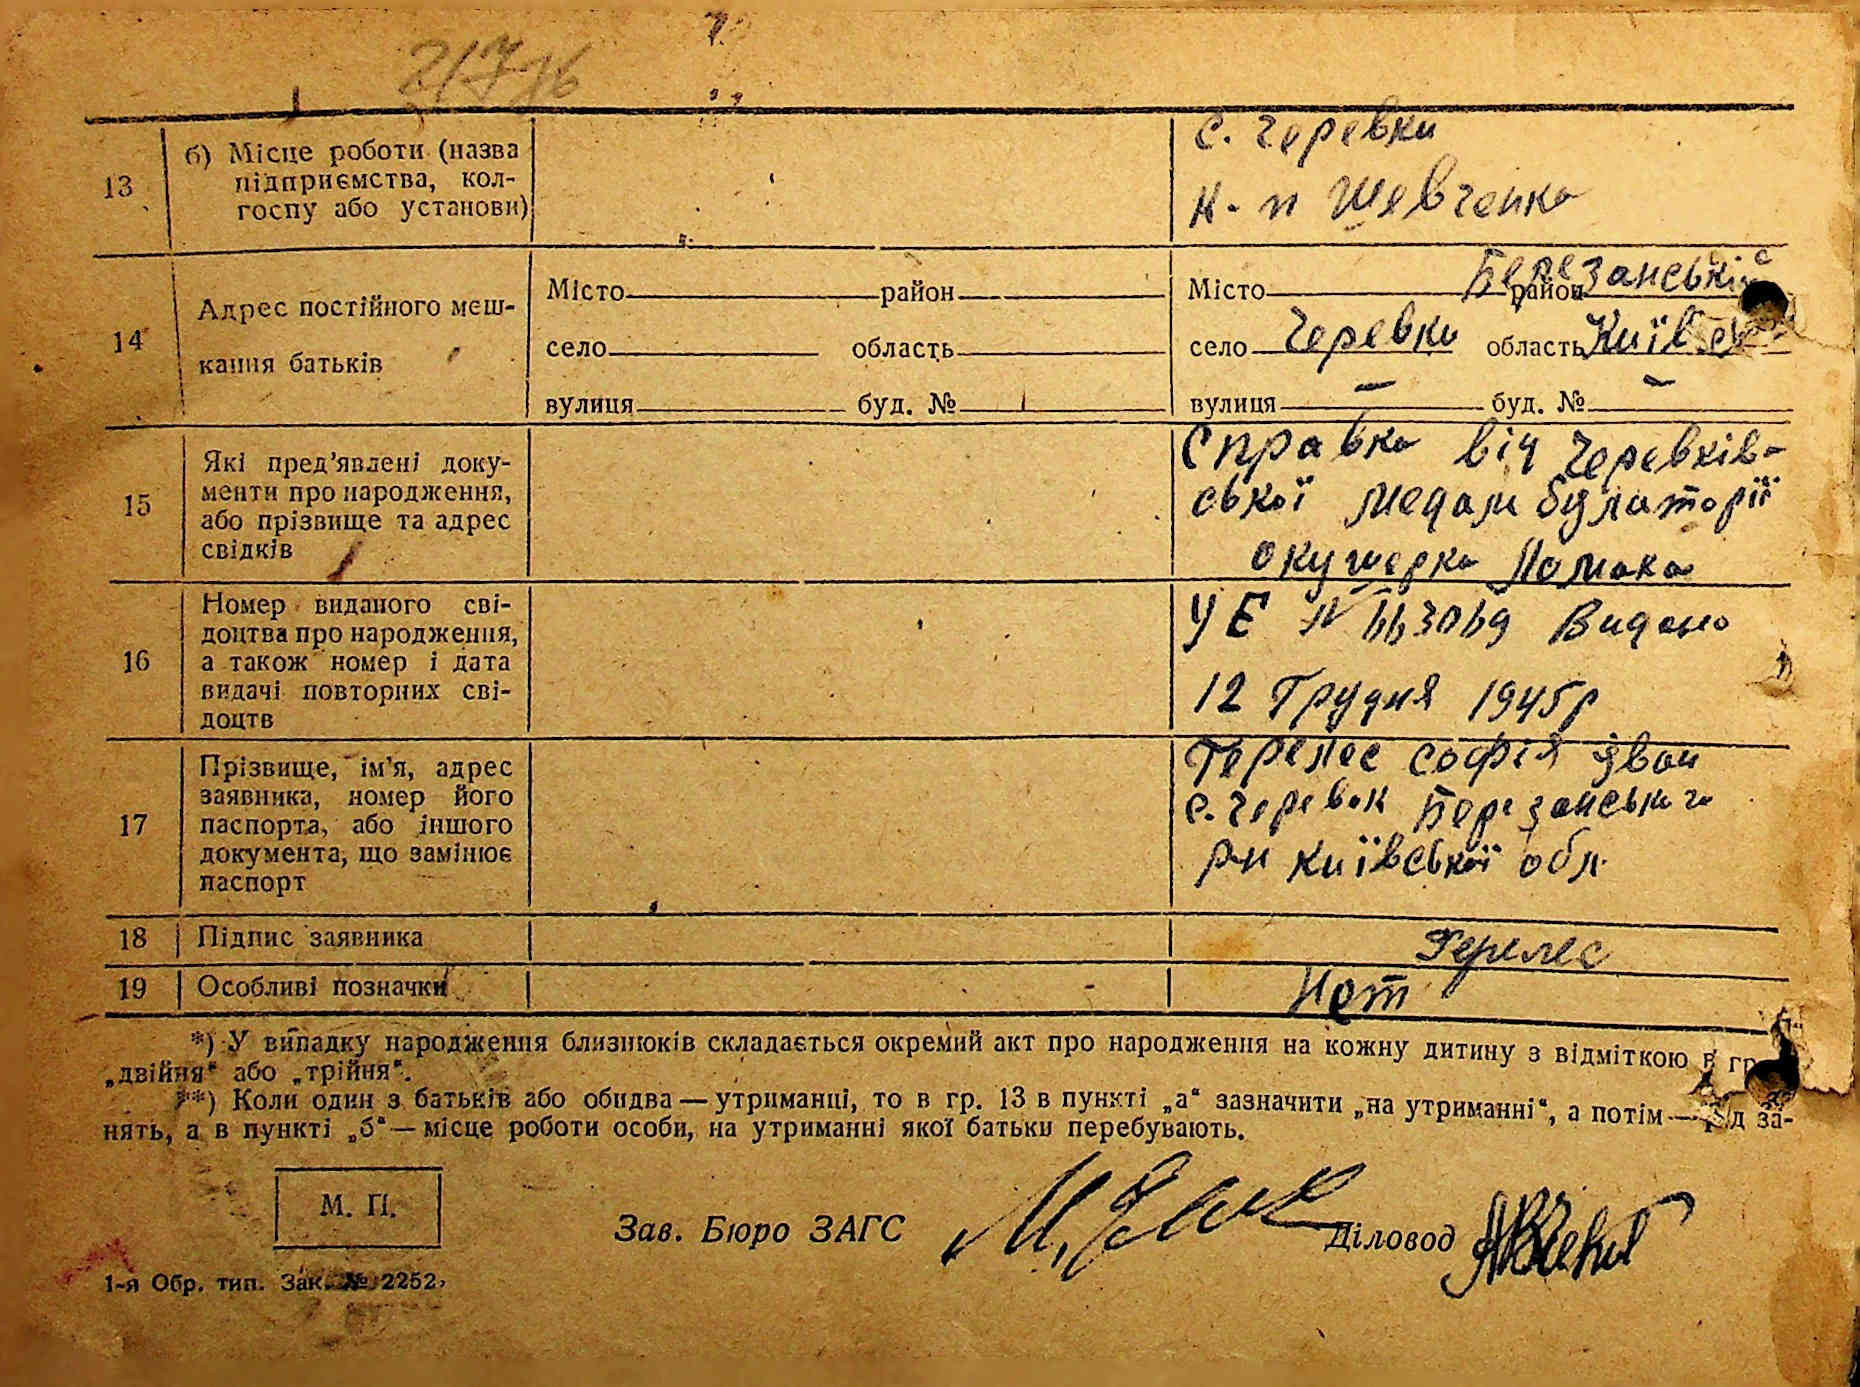 13
б) Місце роботи (назва
підприємства, кол-
госпу або установи)
с. Черевки
к-п Шевченка
14
Адрес постійного меш-
кання батьків
Місто район
село область
вулиця буд. №
Місто район Березанський
село Черевки область Київськ
вулиця — буд. № —
15
Які пред'явлені доку-
менти про народження,
або прізвище та адрес
свідків
Справка від Черевків-
ської медамбулаторії
окушерка
16
Номер виданого сві-
доцтва про народження,
а також номер і дата
видачі повторних сві-
доцтв
УЕ № 663069 Видано
12 Грудня 1945р
17
Прізвище, ім'я, адрес
заявника, номер його
паспорта, або іншого
документа, що замінює
паспорт
Герелес Софія Іван
с. Черевок Березанського
р-н Київської обл.
18 Підпис заявника
Герелес
19 Особливі позначки
Нет
*) У випадку народження близнюків складається окремий акт про народження на кожну дитину з відміткою в гр.
„двійня“ або „трійня“.
**) Коли один з батьків або обидва — утриманці, то в гр. 13 в пункті „а“ зазначити „на утриманні“, а потім — рід за-
нять, а в пункті „б“ — місце роботи особи, на утриманні якої батьки перебувають.
М. П.
Зав. Бюро ЗАГС
Діловод
1-я Обр. тип. Зак. № 2252.